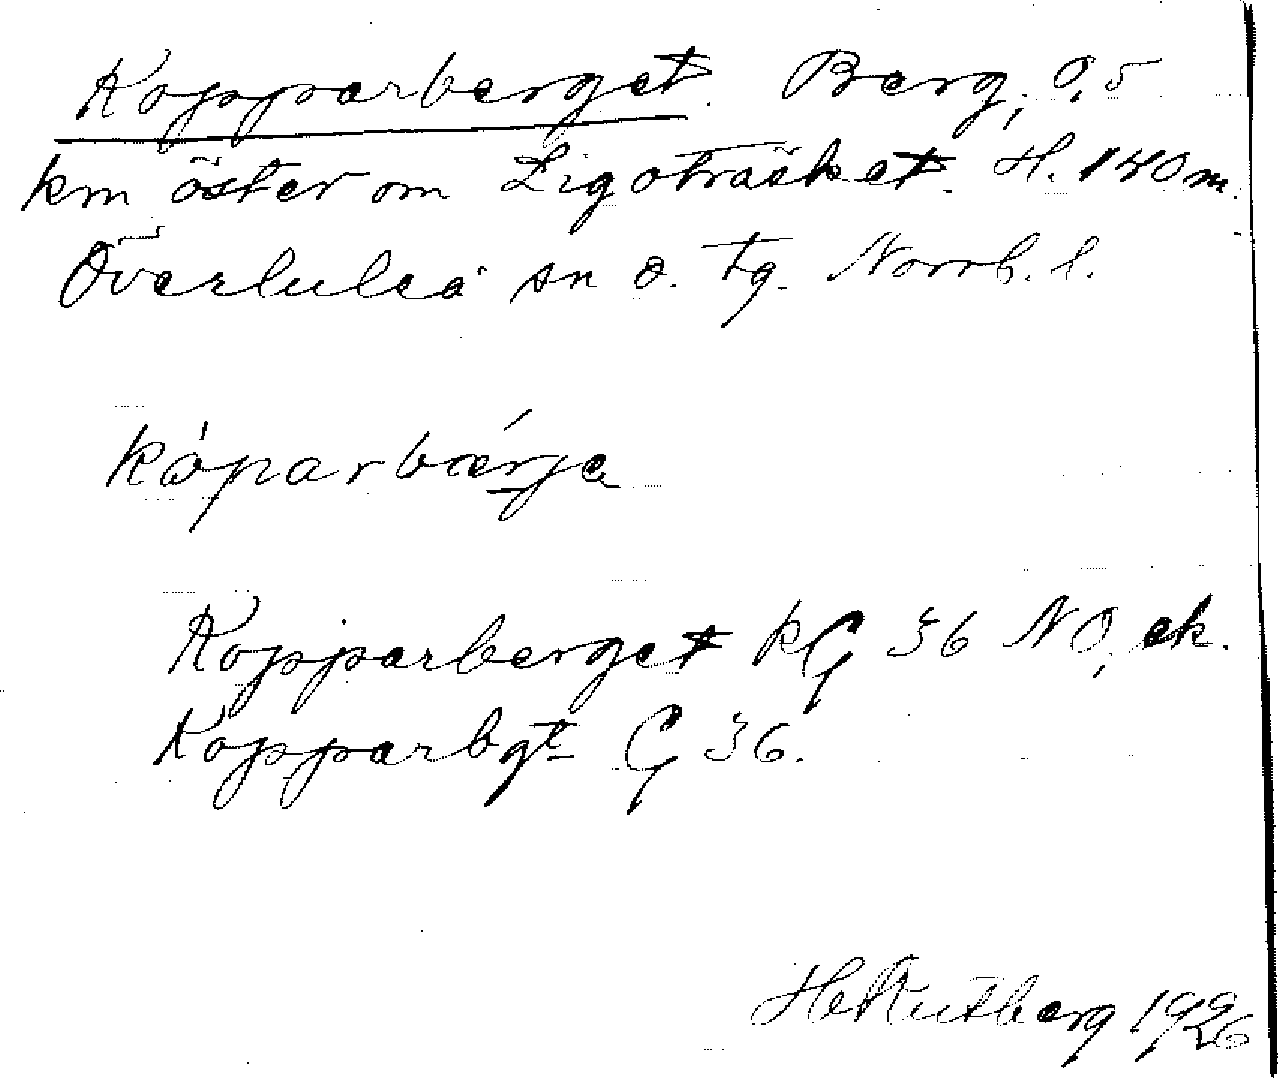 Kopparberget. Berg, 0,5
km öster om Ligoträsket. H. 140 m.
Överluleå sn o. tg. Norrb. l.
kåparbærja
Kopparberget kG 36 NO, ek.
Kopparbgt G 36.
Rutberg 1926